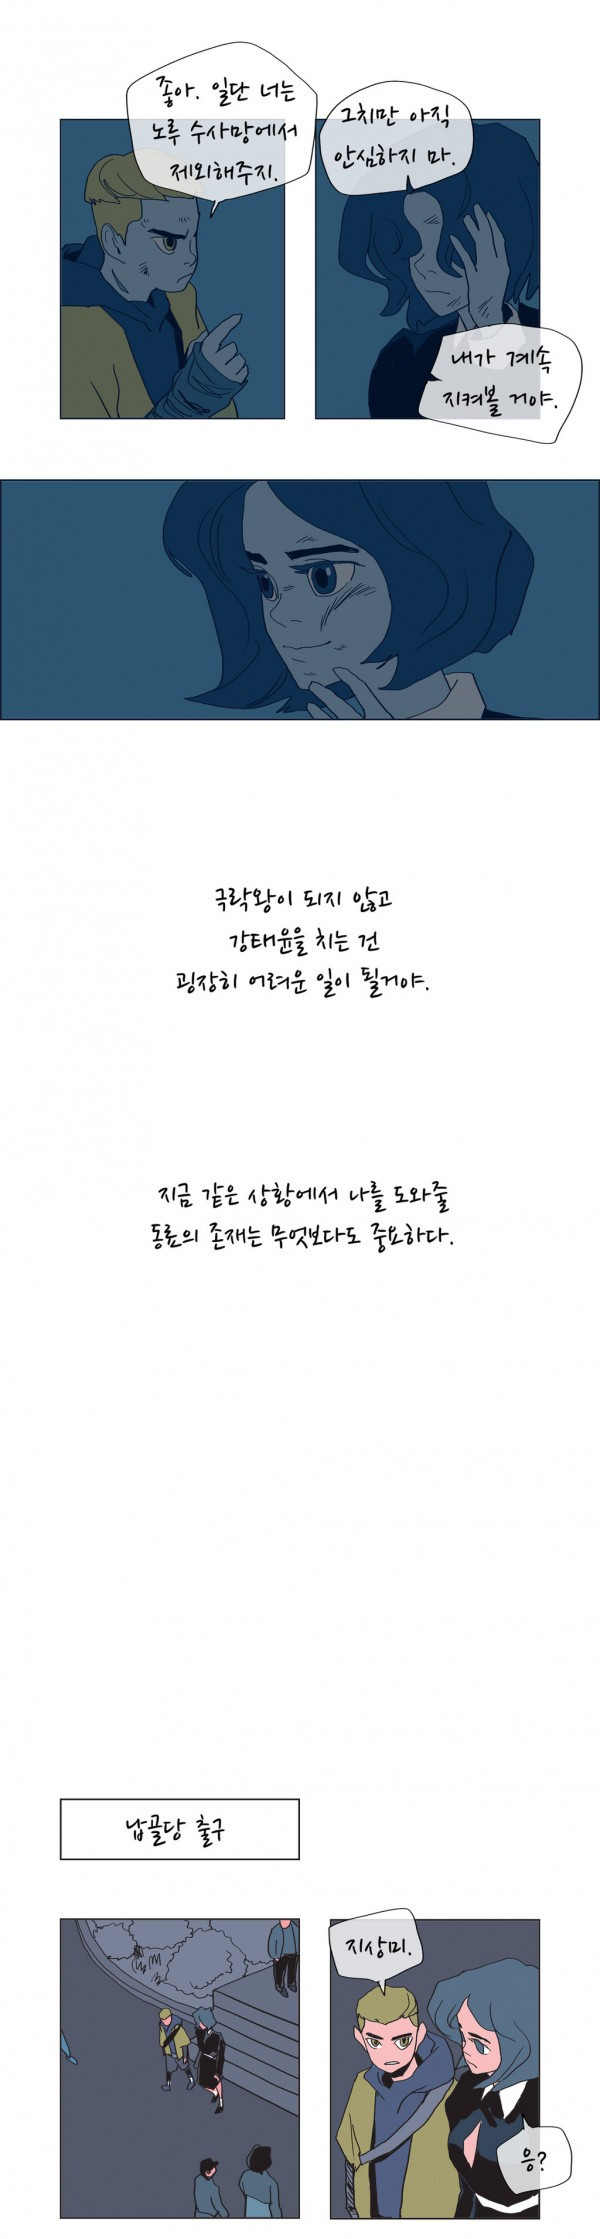 좋아. 일단 너는
노루 수사망에서
제외해주지.
그치만 아직
안심하지 마.
내가 계속
지켜볼 거야.
극락왕이 되지 않고
강태윤을 치는 건
굉장히 어려운 일이 될거야.
지금 같은 상황에서 나를 도와줄
동료의 존재는 무엇보다도 중요하다.
납골당 출구
지상미.
응?